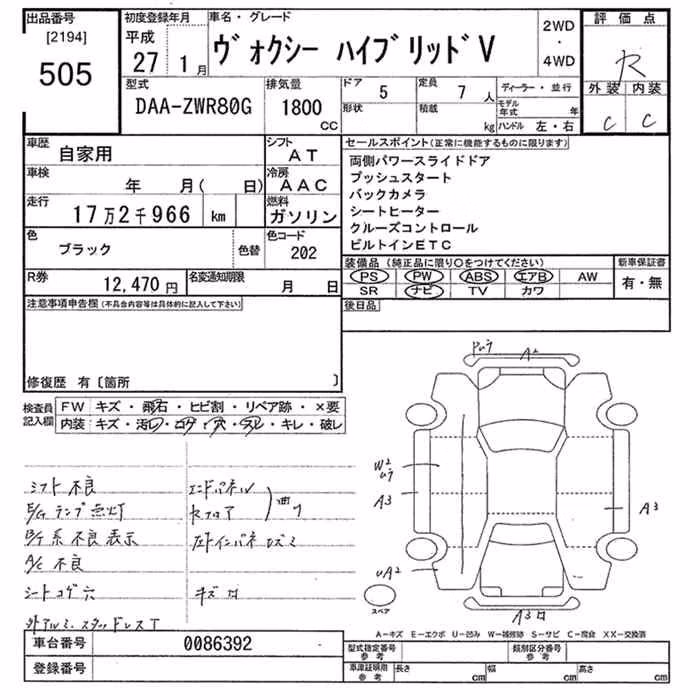 出品番号
[2194]
505
初度登録年月
平成
27 1月
車名・グレード
ヴォクシー ハイブリッドV
2WD
・
4WD
評価点
R
外装 内装
C C
型式
DAA-ZWR80G
排気量
1800
CC
ドア
5
形状
定員
7人
積載
kg
ディーラー・並行
モデル年式 年
ハンドル 左・右
車歴
自家用
シフト
AT
車検
年 月( 日)
冷房
AAC
走行
17万2千966 km
燃料
ガソリン
色
ブラック
色替
色コード
202
R券
12,470円
名変通知期限
月 日
セールスポイント(正常に機能するものに限ります)
両側パワースライドドア
プッシュスタート
バックカメラ
シートヒーター
クルーズコントロール
ビルトインETC
装備品(純正品に限り○をつけてください)
PS PW ABS エアB AW
SR ナビ TV カワ
新車保証書
有・無
後日品
注意事項申告欄(不具合内容等は具体的に記入して下さい)
修復歴 有〔箇所 〕
検査員記入欄
FW キズ・飛石・ヒビ割・リペア跡・×要
内装 キズ・汚レ・コゲ・穴・スレ・キレ・破レ
シフト不良
E/Gランプ点灯
B/T系不良表示
A/C不良
シートコゲ穴
外アルミ、スタッドレスT
エンドパネル
キズ
PUラ
A2
W2
Uラ
A3
UA2
A3
A3
スペア
A-キズ E-エクボ U-凹み W-補修跡 S-サビ C-腐食 XX-交換済
車台番号
0086392
登録番号
型式指定番号
参考
類別区分番号
参考
車庫証明用
参考
長さ cm
幅 cm
高さ cm